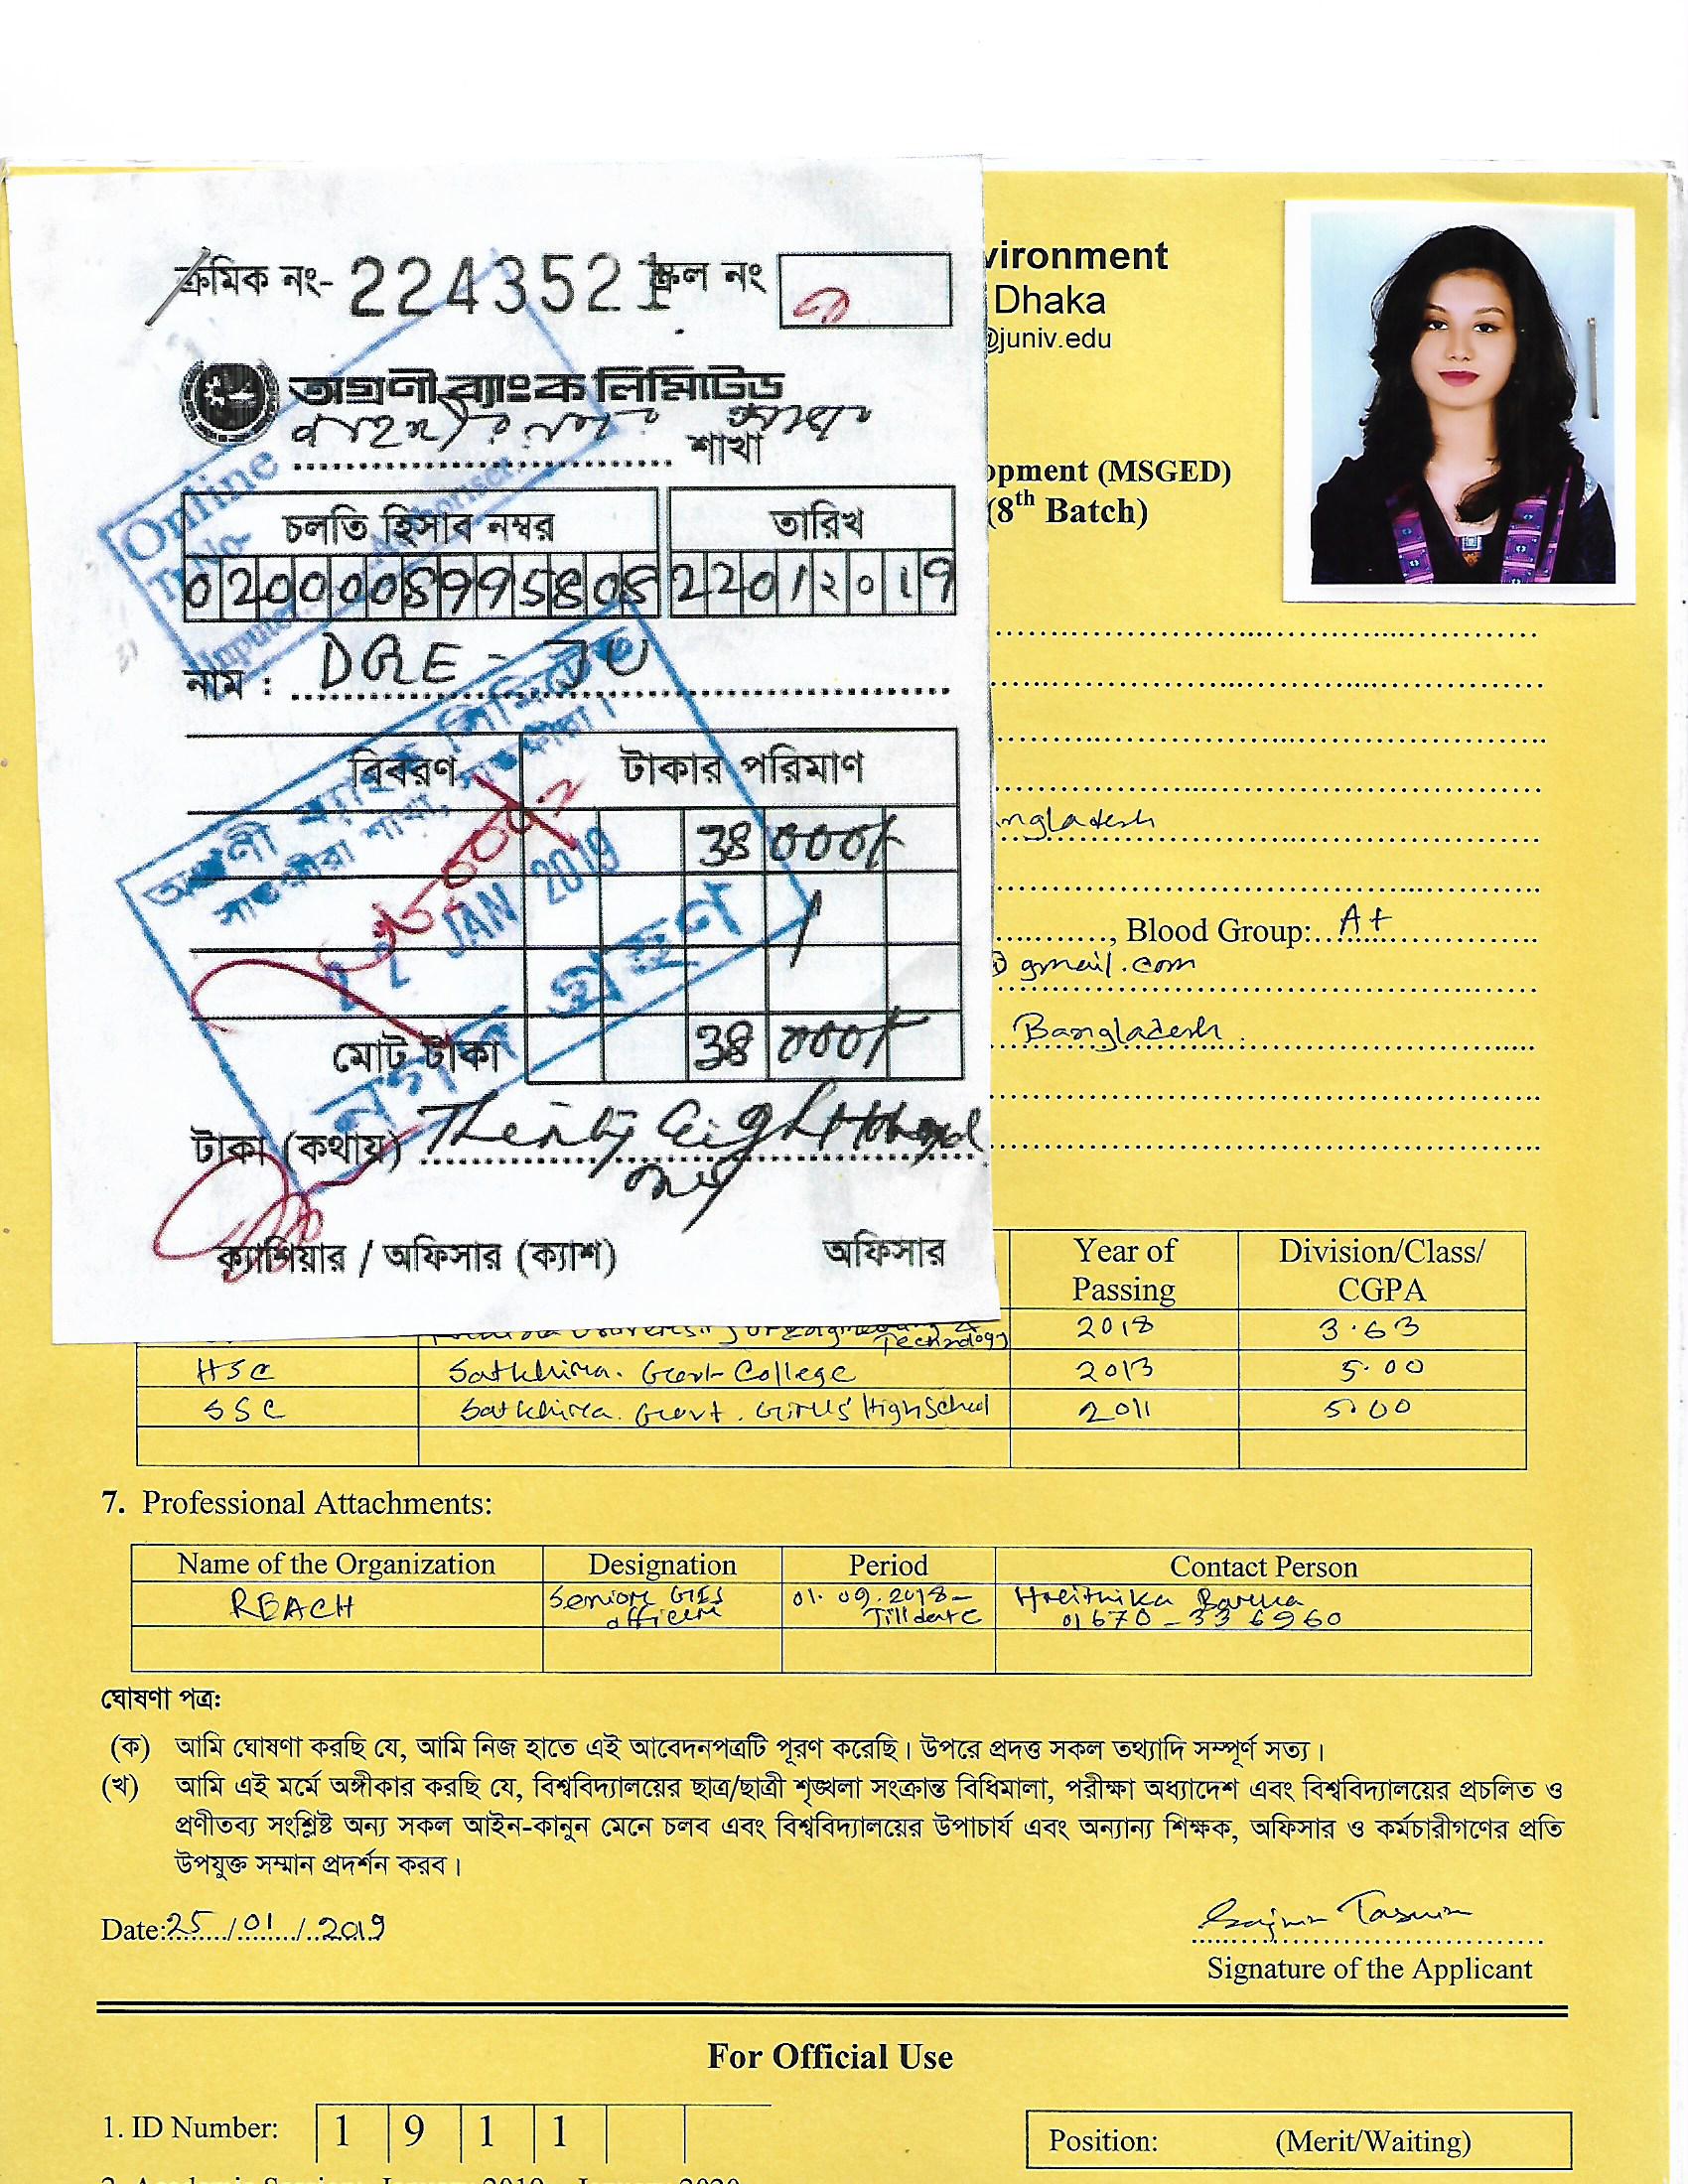 ক্রমিক নং- 2243521 স্ক্রল নং
অগ্রণী ব্যাংক লিমিটেড
শাখা
চলতি হিসাব নম্বর তারিখ
0200008995808 22012019
নাম : DGE - JU
বিবরণ টাকার পরিমাণ
38 000/-
মোট টাকা 38 000/-
টাকা (কথায়) Thirty Eight thousand
only
ক্যাশিয়ার / অফিসার (ক্যাশ) অফিসার
Online
অগ্রণী ব্যাংক লিমিটেড
সাতক্ষীরা শাখা, সাতক্ষীরা।
22 JAN 2019
নগদ গ্রহণ
vironment
Dhaka
@juniv.edu
opment (MSGED)
(8th Batch)
ngladesh
, Blood Group: A+
@gmail.com
Bangladesh
Year of Passing Division/Class/CGPA
Technology 2018 3.63
HSC Satkhira. Govt College 2013 5.00
SSC Satkhira. Govt. Girls' High School 2011 5.00
7. Professional Attachments:
Name of the Organization Designation Period Contact Person
REACH Senior GIS officer 01.09.2018- Till date 01670-336960
ঘোষণা পত্র:
(ক) আমি ঘোষণা করছি যে, আমি নিজ হাতে এই আবেদনপত্রটি পূরণ করেছি। উপরে প্রদত্ত সকল তথ্যাদি সম্পূর্ণ সত্য।
(খ) আমি এই মর্মে অঙ্গীকার করছি যে, বিশ্ববিদ্যালয়ের ছাত্র/ছাত্রী শৃঙ্খলা সংক্রান্ত বিধিমালা, পরীক্ষা অধ্যাদেশ এবং বিশ্ববিদ্যালয়ের প্রচলিত ও
প্রণীতব্য সংশ্লিষ্ট অন্য সকল আইন-কানুন মেনে চলব এবং বিশ্ববিদ্যালয়ের উপাচার্য এবং অন্যান্য শিক্ষক, অফিসার ও কর্মচারীগণের প্রতি
উপযুক্ত সম্মান প্রদর্শন করব।
Date: 25/01/2019
Signature of the Applicant
For Official Use
1. ID Number: 1 9 1 1
Position: (Merit/Waiting)